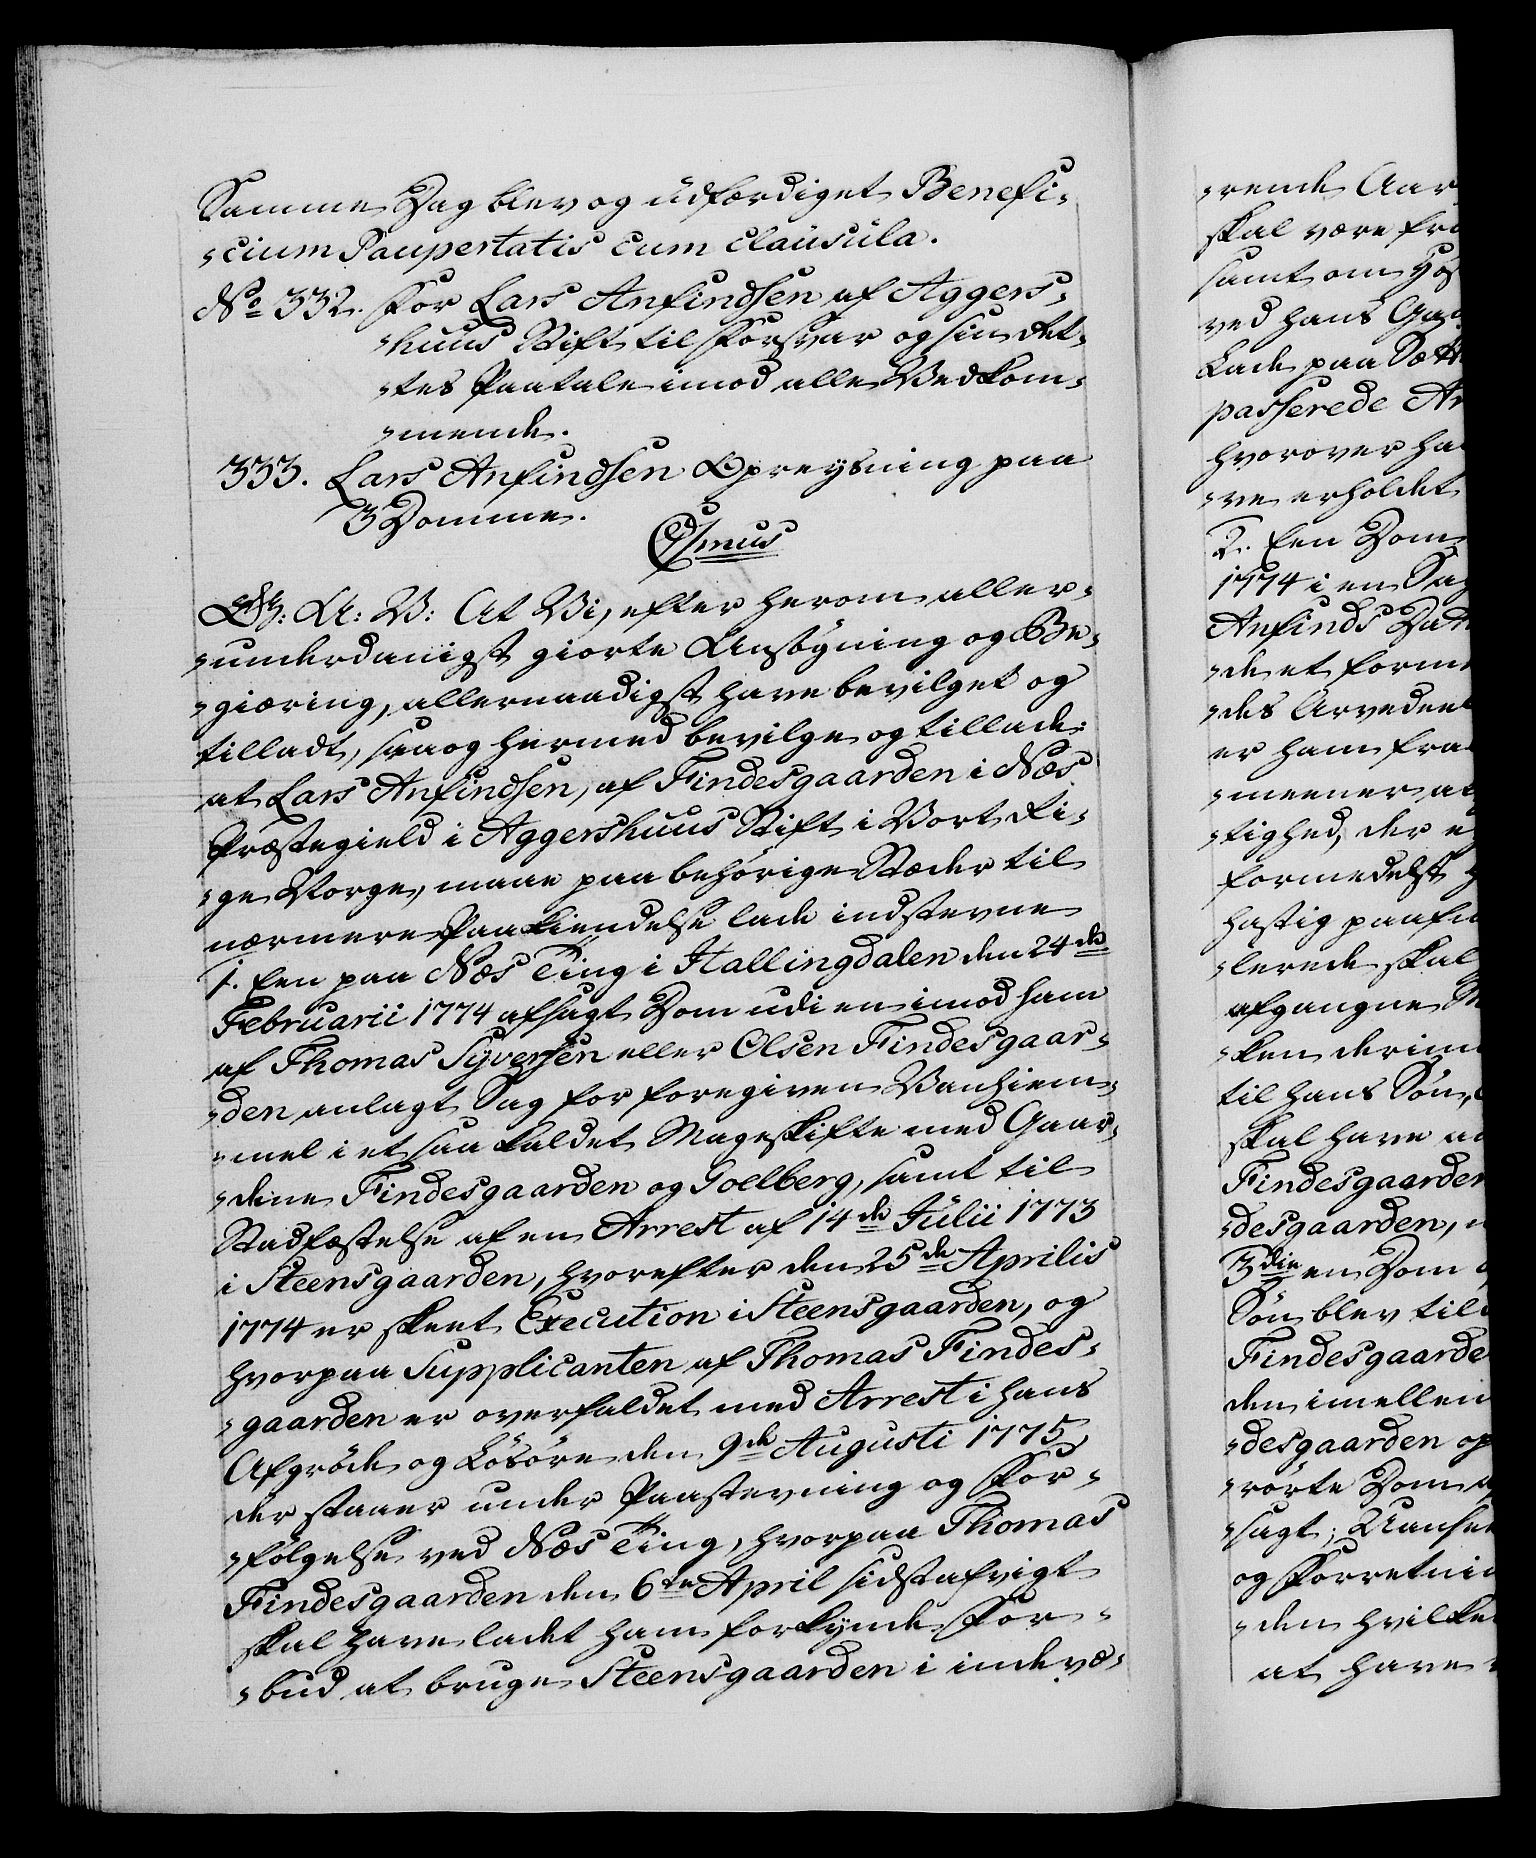 Samme Dag blev og udfærdiget Benefi-
-cium Paupertatis cum clausula.
No 332. For Lars Anfindsen af Aggers-
-huus Stift til Forsvar og sin Ret-
-tes Paatale imod alle Vedkom-
-mende.
333. Lars Anfindsen Opreysning paa
3 Domme.
C7mus
G: A: V: At Vi, efter herom aller-
-underdanigst giorte Ansögning og Be-
-giæring, allernaadigst have bevilget og
tilladt, saa og hermed bevilge og tillade:
at Lars Anfindsen, af Findesgaarden i Næs
Præstegield i Aggershuus Stift i Vort Ri-
-ge Norge, maae paa behörige Stæder til
nærmere Paakiendelse lade indstevne
1. Een paa Næs Ting i Hallingdalen den 24de
Februarii 1774 afsagt Dom udi en imod ham
af Thomas Syversen eller Olsen Findesgaar-
-den anlagt Sag for foregiven Vanhiem-
-mel i et saa kaldet Mageskifte med Gaar-
-dene Findesgaarden og Goelberg, samt til
Stadfæstelse af en Arrest af 14de Julii 1773
i Steensgaarden, hvorefter den 25de Aprilis
1774 er skeet Execution i Steensgaarden, og
hvorpaa Supplicanten af Thomas Findes-
-gaarden er overfaldet med Arrest i hans
Afgröde og Lösöre den 9de Augusti 1775,
der staaer under Paastevning og For-
-fölgelse ved Næs Ting, hvorpaa Thomas
Findesgaarden den 6te April sidstafvigt
skal have ladet ham forkynde For-
-bud at bruge Steensgaarden i indevæ-
-rende Aar
skal være fra
samt om
ved hans
Lade paa
passerede
hvorover
-ve erholdet
2. Een Dom
1774 i en Sag
Anfinds
-de et
-des
er ham
-meener
-tighed, der
formedelst
hastig
-lerede skal
afgangne
-ken
til hans Sön,
skal have
Findesgaarden
-desgaarden,
3die en Dom
Sön blev
Findesgaarde
den imellem
-desgaarden
-rörte Dom
-sagt;
og
-den
at have